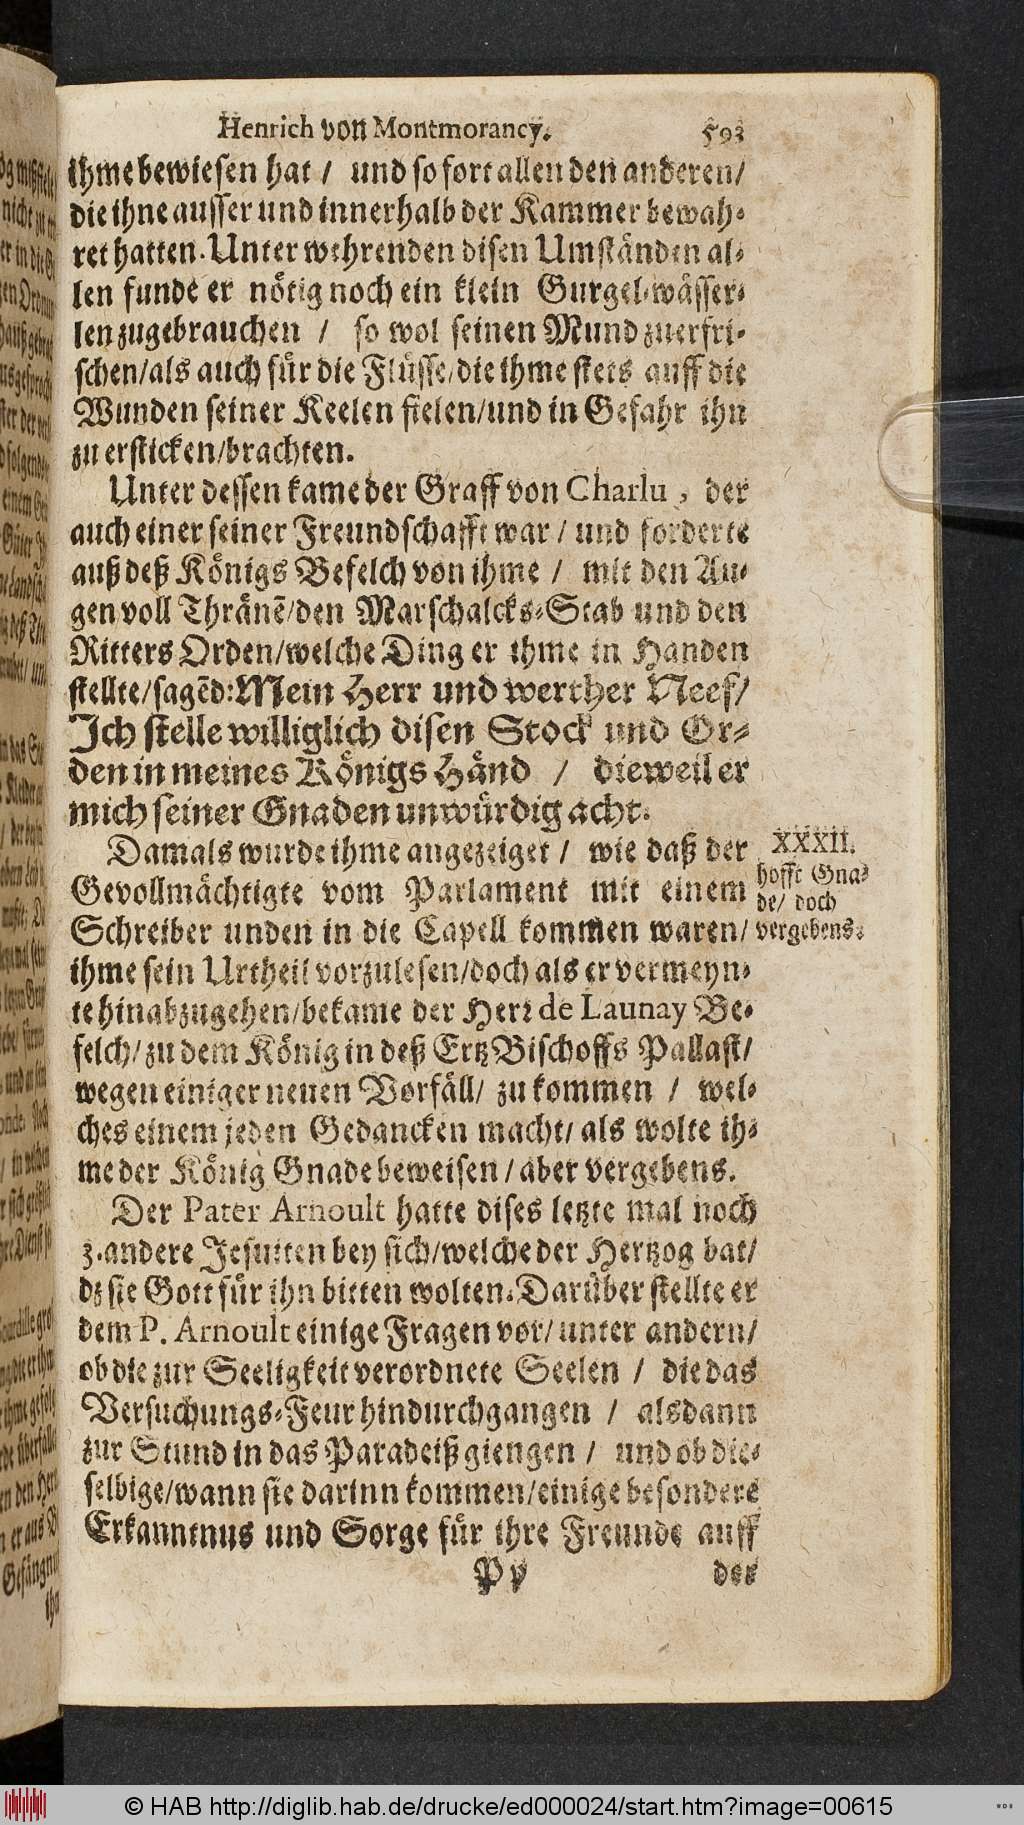 Henrich von Montmorancy. 593
ihme bewiesen hat / und so fort allen den anderen/
die ihne ausser und innerhalb der Kammer bewah-
ret hatten. Unter wehrenden disen Umständen al-
len funde er nötig noch ein klein Gurgel-wässer-
len zugebrauchen / so wol seinen Mund zuerfri-
schen/als auch für die Flüsse/die ihme stets auff die
Wunden seiner Keelen fielen/und in Gefahr ihn
zu ersticken/brachten.
Unter dessen kame der Graff von Charlu, der
auch einer seiner Freundschafft war / und forderte
auß deß Königs Befelch von ihme / mit den Au-
gen voll Thränē/den Marschalcks-Stab und den
Ritters Orden/welche Ding er ihme in Handen
stellte/sagēd: Mein Herr und werther Neef/
Ich stelle williglich disen Stock und Or-
den in meines Königs Händ / dieweil er
mich seiner Gnaden unwürdig acht.
Damals wurde ihme angezeiget / wie daß der
Gevollmächtigte vom Parlament mit einem
Schreiber unden in die Capell kommen waren/
ihme sein Urtheil vorzulesen/doch als er vermeyn-
te hinabzugehen/bekame der Herz de Launay Be-
felch/zu dem König in deß ErtzBischoffs Pallast/
wegen einiger neuen Vorfäll/ zu kommen / wel-
ches einem jeden Gedancken macht/ als wolte ih-
me der König Gnade beweisen / aber vergebens.
XXXII.
hofft Gna-
de/ doch
vergebens.
Der Pater Arnoult hatte dises letzte mal noch
z. andere Jesuiten bey sich/welche der Hertzog bat/
dz sie Gott für ihn bitten wolten. Darüber stellte er
dem P. Arnoult einige Fragen vor/ unter andern/
ob die zur Seeligkeit verordnete Seelen / die das
Versuchungs-Feur hindurchgangen / alsdann
zur Stund in das Paradeiß giengen / und ob die-
selbige/wann sie darinn kommen/einige besondere
Erkanntnus und Sorge für ihre Freunde auff
Pp der
© HAB http://diglib.hab.de/drucke/ed000024/start.htm?image=00615